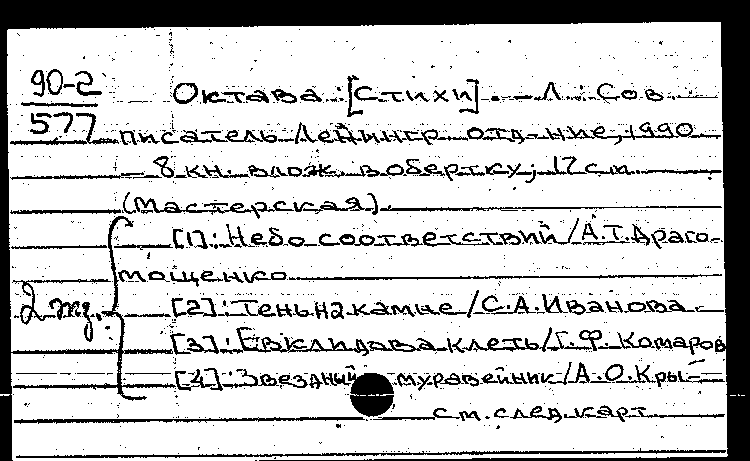 90-2
577
Октава : [Стихи]. – Л. : Сов.
писатель. Ленингр. отд-ние, 1990
– 8 кн. влож. в обертку ; 17 см.
(Мастерская).
[1] : Небо соответствий / А.Т. Драго-
мощенко
2 экз.
[2] : Тень на камне / С.А. Иванова.
[3] : Евклидова клеть / Г.Ф. Комаров
[4] : Звездный муравейник / А.О. Кры-
см. след. карт.